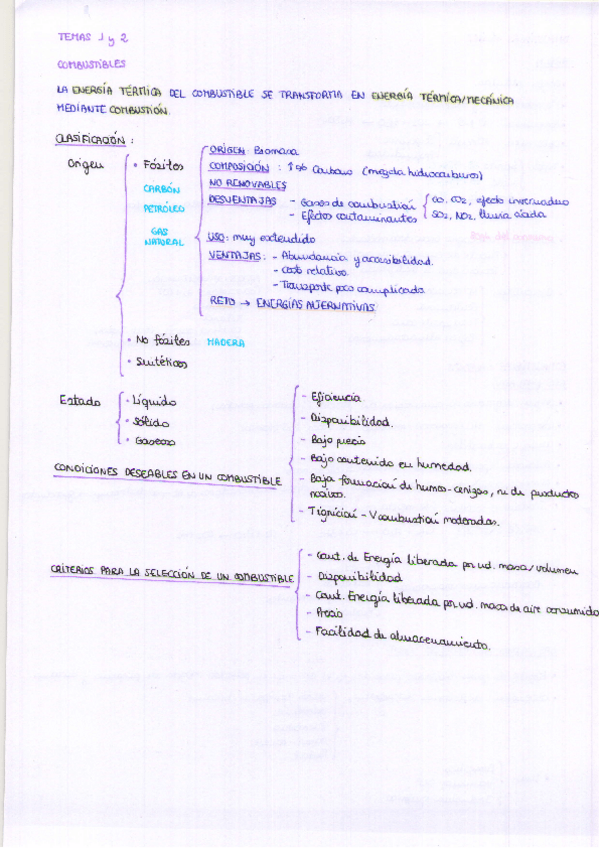 TEMAS 1 y 2
COMBUSTIBLES
LA ENERGÍA TÉRMICA DEL COMBUSTIBLE SE TRANSFORMA EN ENERGÍA TÉRMICA/MECÁNICA
MEDIANTE COMBUSTIÓN.
CLASIFICACIÓN :
Origen
• Fósiles
CARBÓN
PETRÓLEO
GAS
NATURAL
ORIGEN: Biomasa
COMPOSICIÓN : ↑ % Carbono (mezcla hidrocarburos)
NO RENOVABLES
DESVENTAJAS - Gases de combustión
- Efectos contaminantes
CO, CO2, efecto invernadero
SO2, NO2, lluvia ácida
USO: muy extendido
VENTAJAS: - Abundancia y accesibilidad.
- Coste relativo.
- Transporte poco complicado.
RETO → ENERGÍAS ALTERNATIVAS
• No fósiles MADERA
• Sintéticos
Estado
• Líquido
• Sólido
• Gaseoso
CONDICIONES DESEABLES EN UN COMBUSTIBLE
- Eficiencia
- Disponibilidad.
- Bajo precio
- Bajo contenido en humedad.
- Baja formación de humos-cenizas, ni de productos
nocivos.
- Tignición - Vcombustión moderadas.
CRITERIOS PARA LA SELECCIÓN DE UN COMBUSTIBLE
- Cant. de Energía liberada por ud. masa/volumen
- Disponibilidad
- Cant. Energía liberada por ud. masa de aire consumido
- Precio
- Facilidad de almacenamiento.